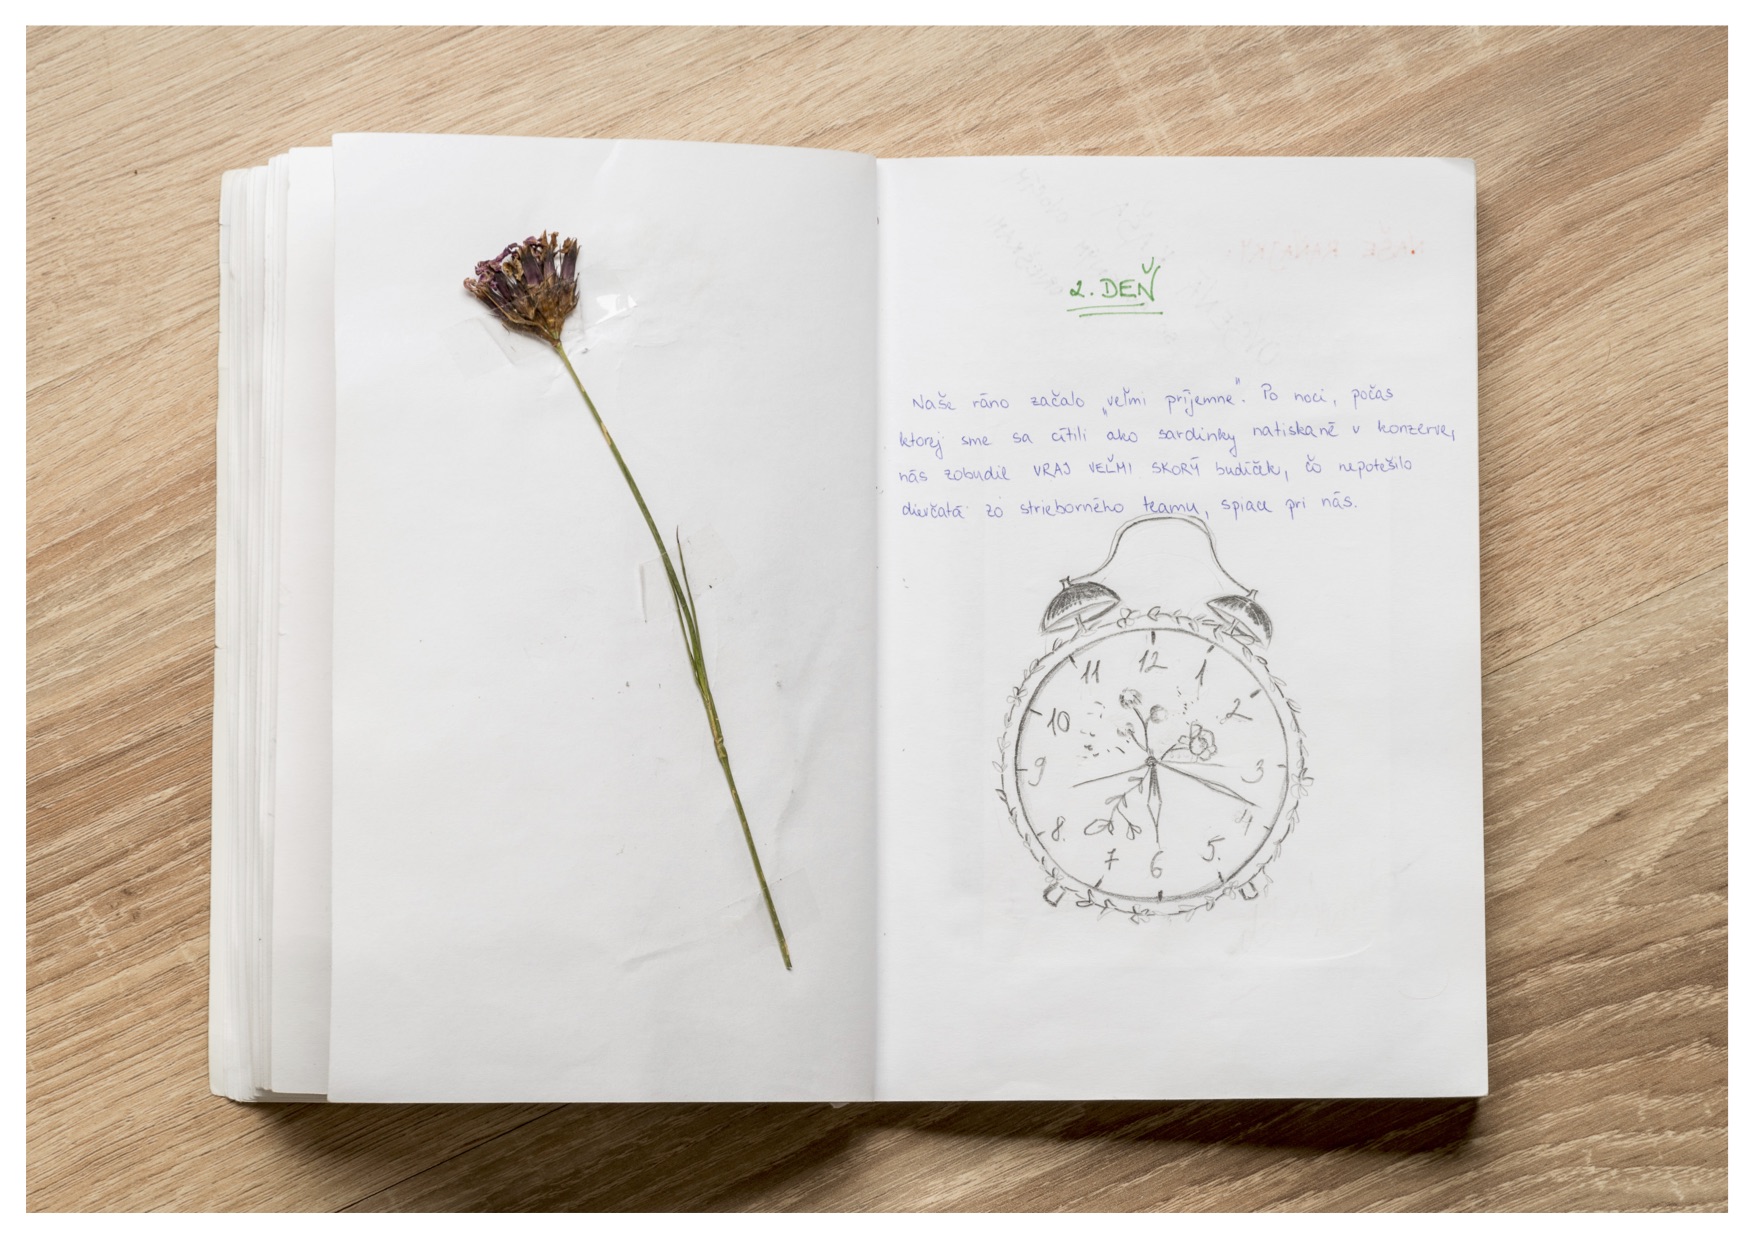 2. DEŇ
Naše ráno začalo „veľmi príjemne". Po noci, počas
ktorej sme sa cítili ako sardinky natiskané v konzerve,
nás zobudil VRAJ VEĽMI SKORÝ budíček, čo nepotešilo
dievčatá zo strieborného teamu, spiace pri nás.
11 12 1
10 2
9 3
8. 4
7 6 5.